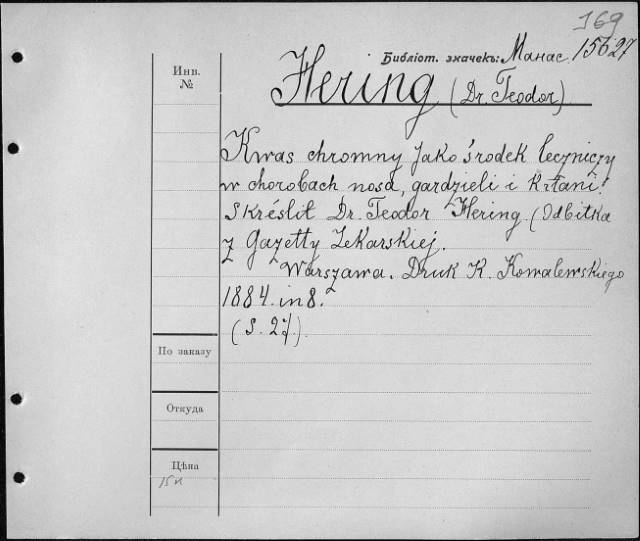 169
Библіот. значекъ: Манас. 15627
Инв.
№
Hering (Dr. Teodor)
Kwas chromny jako środek leczniczy
w chorobach nosa, gardzieli i krtani.
Skréslił Dr. Teodor Hering. (Odbitka
z Gazetty Lekarskiej.
Warszawa. Druk K. Kowalewskiego
1884. in 8.
(S. 27.)
По заказу
Откуда
Цѣна